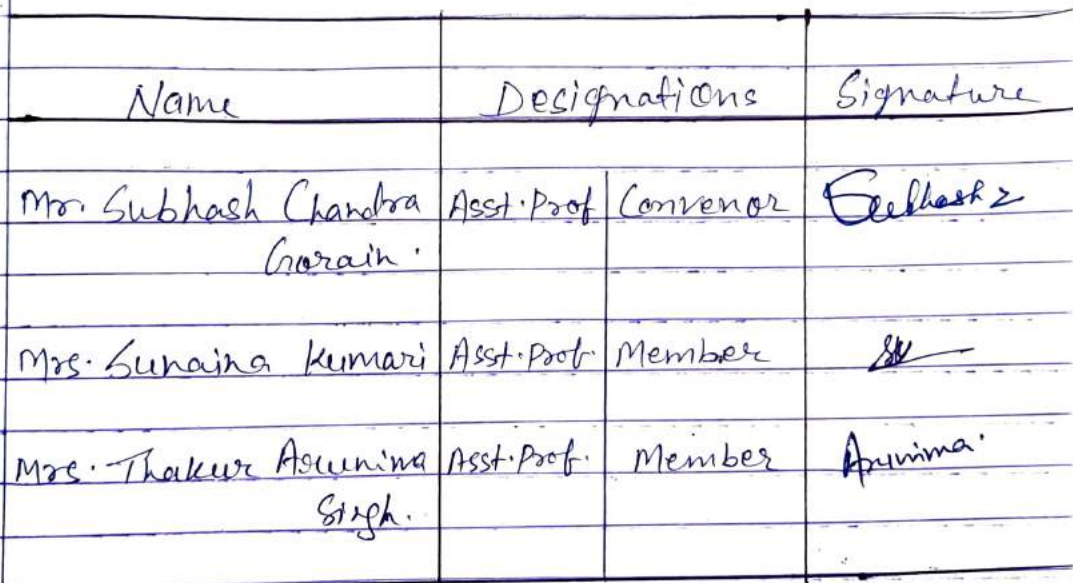 Name Designations Signature
Mr. Subhash Chandra Asst. Prof Convenor Subhash
Gorain.
Mrs. Sunaina Kumari Asst. Prof. Member
Mrs. Thakur Arunima Asst. Prof. Member Arunima
Singh.